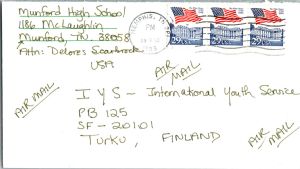 Munford High School
1186 McLaughlin
Munford, TN. 38058
Attn: Delores Scarbrock
USA
MEMPHIS, TN
PM
29 USA
29 USA
29
AIR MAIL
AIR MAIL
IYS- International Youth Service
PB 125
SF - 20101
Turku, FINLAND
AIR MAIL